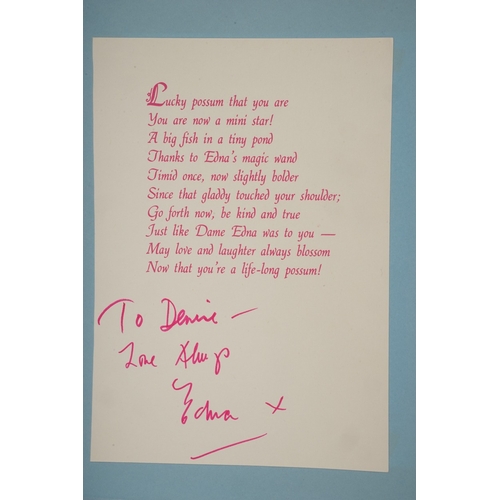 Lucky possum that you are
You are now a mini star!
A big fish in a tiny pond
Thanks to Edna's magic wand
Timid once, now slightly bolder
Since that gladdy touched your shoulder;
Go forth now, be kind and true
Just like Dame Edna was to you —
May love and laughter always blossom
Now that you're a life-long possum!
To Denise —
Love Always
Edna x